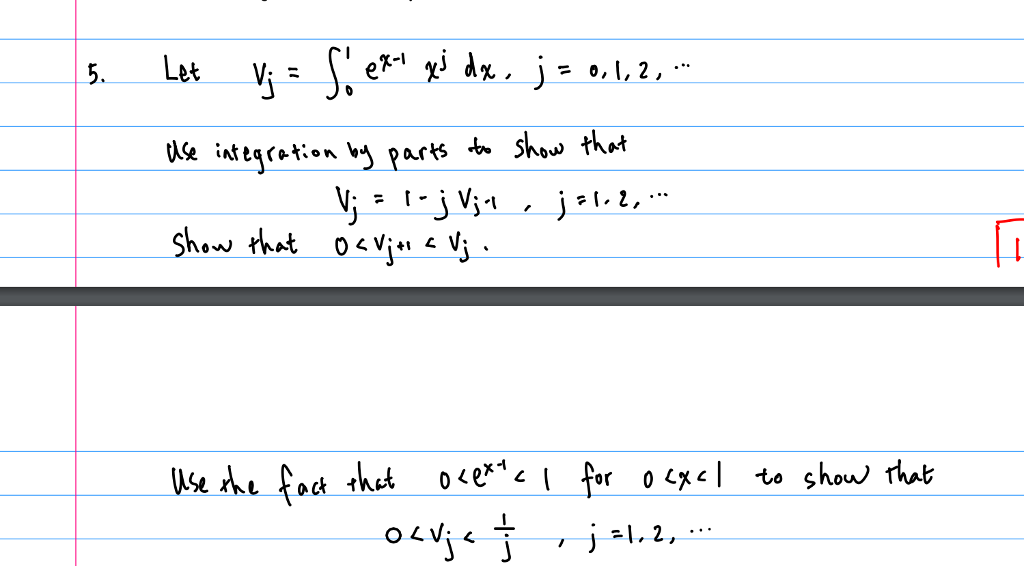 5. Let V_j = ∫_0^1 e^{x-1} x^j dx, j = 0, 1, 2, ...
Use integration by parts to show that
V_j = 1 - j V_{j-1} , j = 1, 2, ...
Show that 0 < V_{j+1} < V_j .
Use the fact that 0 < e^{x-1} < 1 for 0 < x < 1 to show that
0 < V_j < 1/j , j = 1, 2, ...